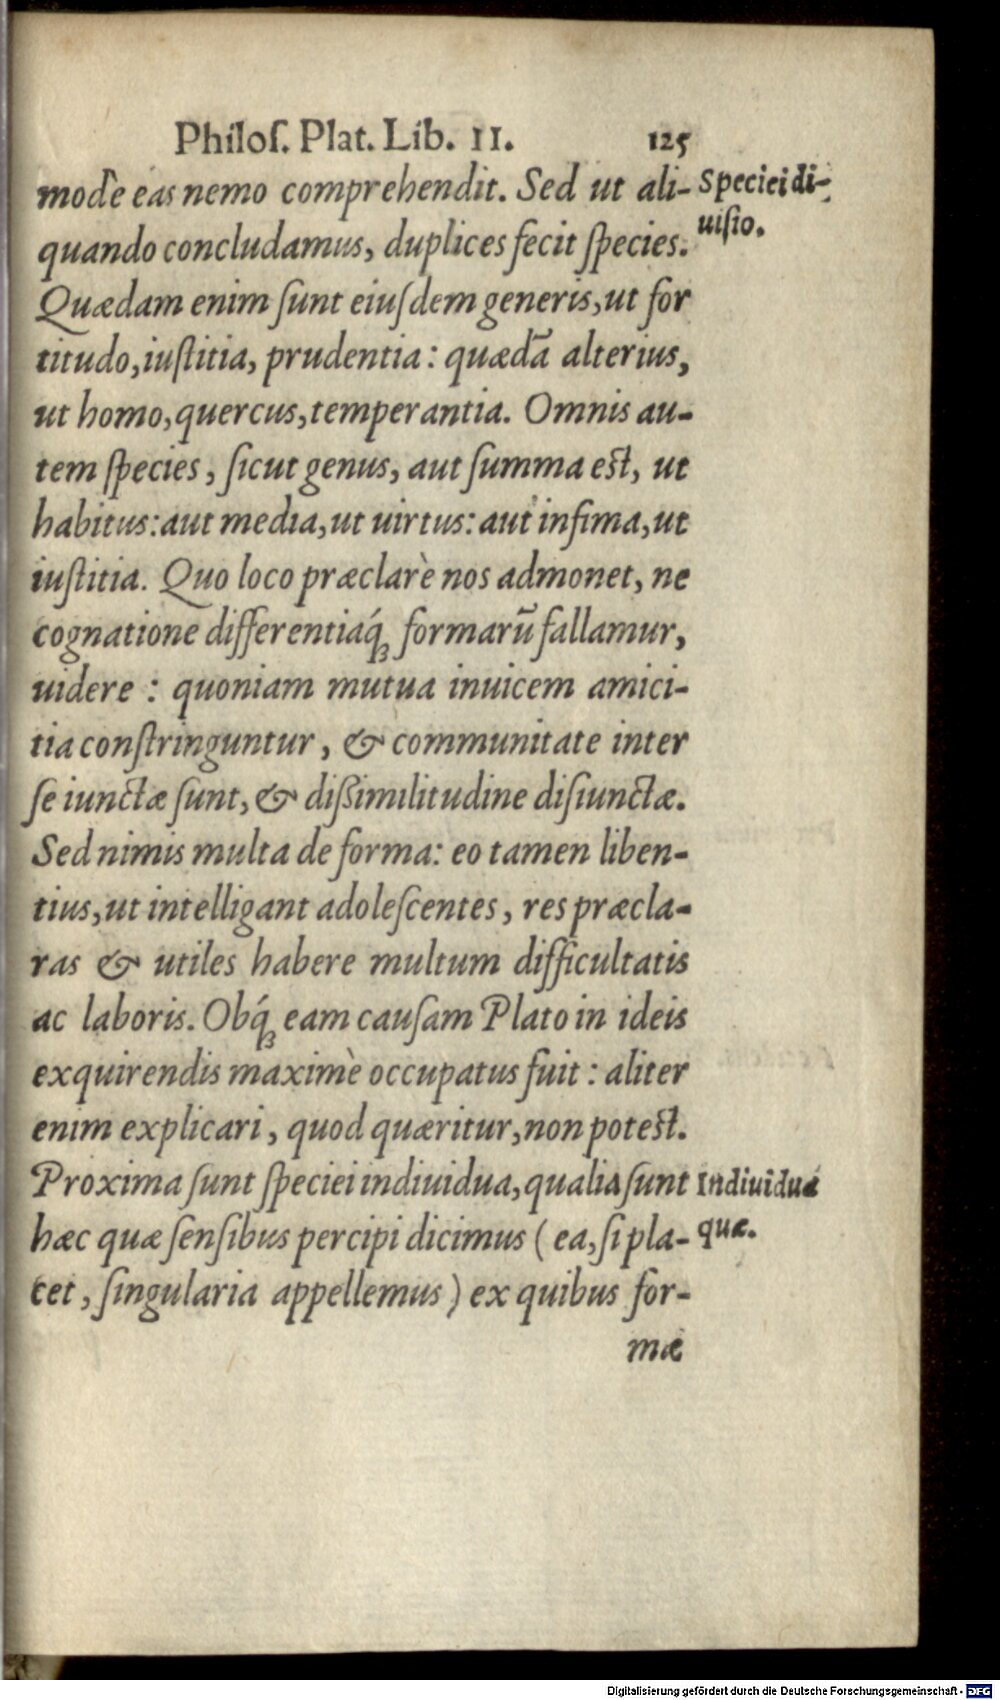 Philoſ. Plat. Lib. II. 125
modè eas nemo comprehendit. Sed ut ali-
Speciei di-
uiſio.
quando concludamus, duplices fecit ſpecies.
Quædam enim ſunt eiuſdem generis, ut for
titudo, iuſtitia, prudentia: quædã alterius,
ut homo, quercus, temperantia. Omnis au-
tem ſpecies, ſicut genus, aut ſumma eſt, ut
habitus: aut media, ut uirtus: aut infima, ut
iuſtitia. Quo loco præclarè nos admonet, ne
cognatione differentiáq́; formarũ fallamur,
uidere: quoniam mutua inuicem amici-
tia conſtringuntur, & communitate inter
ſe iunctæ ſunt, & diſsimilitudine diſiunctæ.
Sed nimis multa de forma: eo tamen liben-
tius, ut intelligant adoleſcentes, res præcla-
ras & utiles habere multum difficultatis
ac laboris. Obq́; eam cauſam Plato in ideis
exquirendis maximè occupatus fuit: aliter
enim explicari, quod quæritur, non poteſt.
Proxima ſunt ſpeciei indiuidua, qualia ſunt
Indiuidua
quæ.
hæc quæ ſenſibus percipi dicimus (ea, ſi pla-
cet, ſingularia appellemus) ex quibus for-
mæ
Digitalisierung gefördert durch die Deutsche Forschungsgemeinschaft - DFG